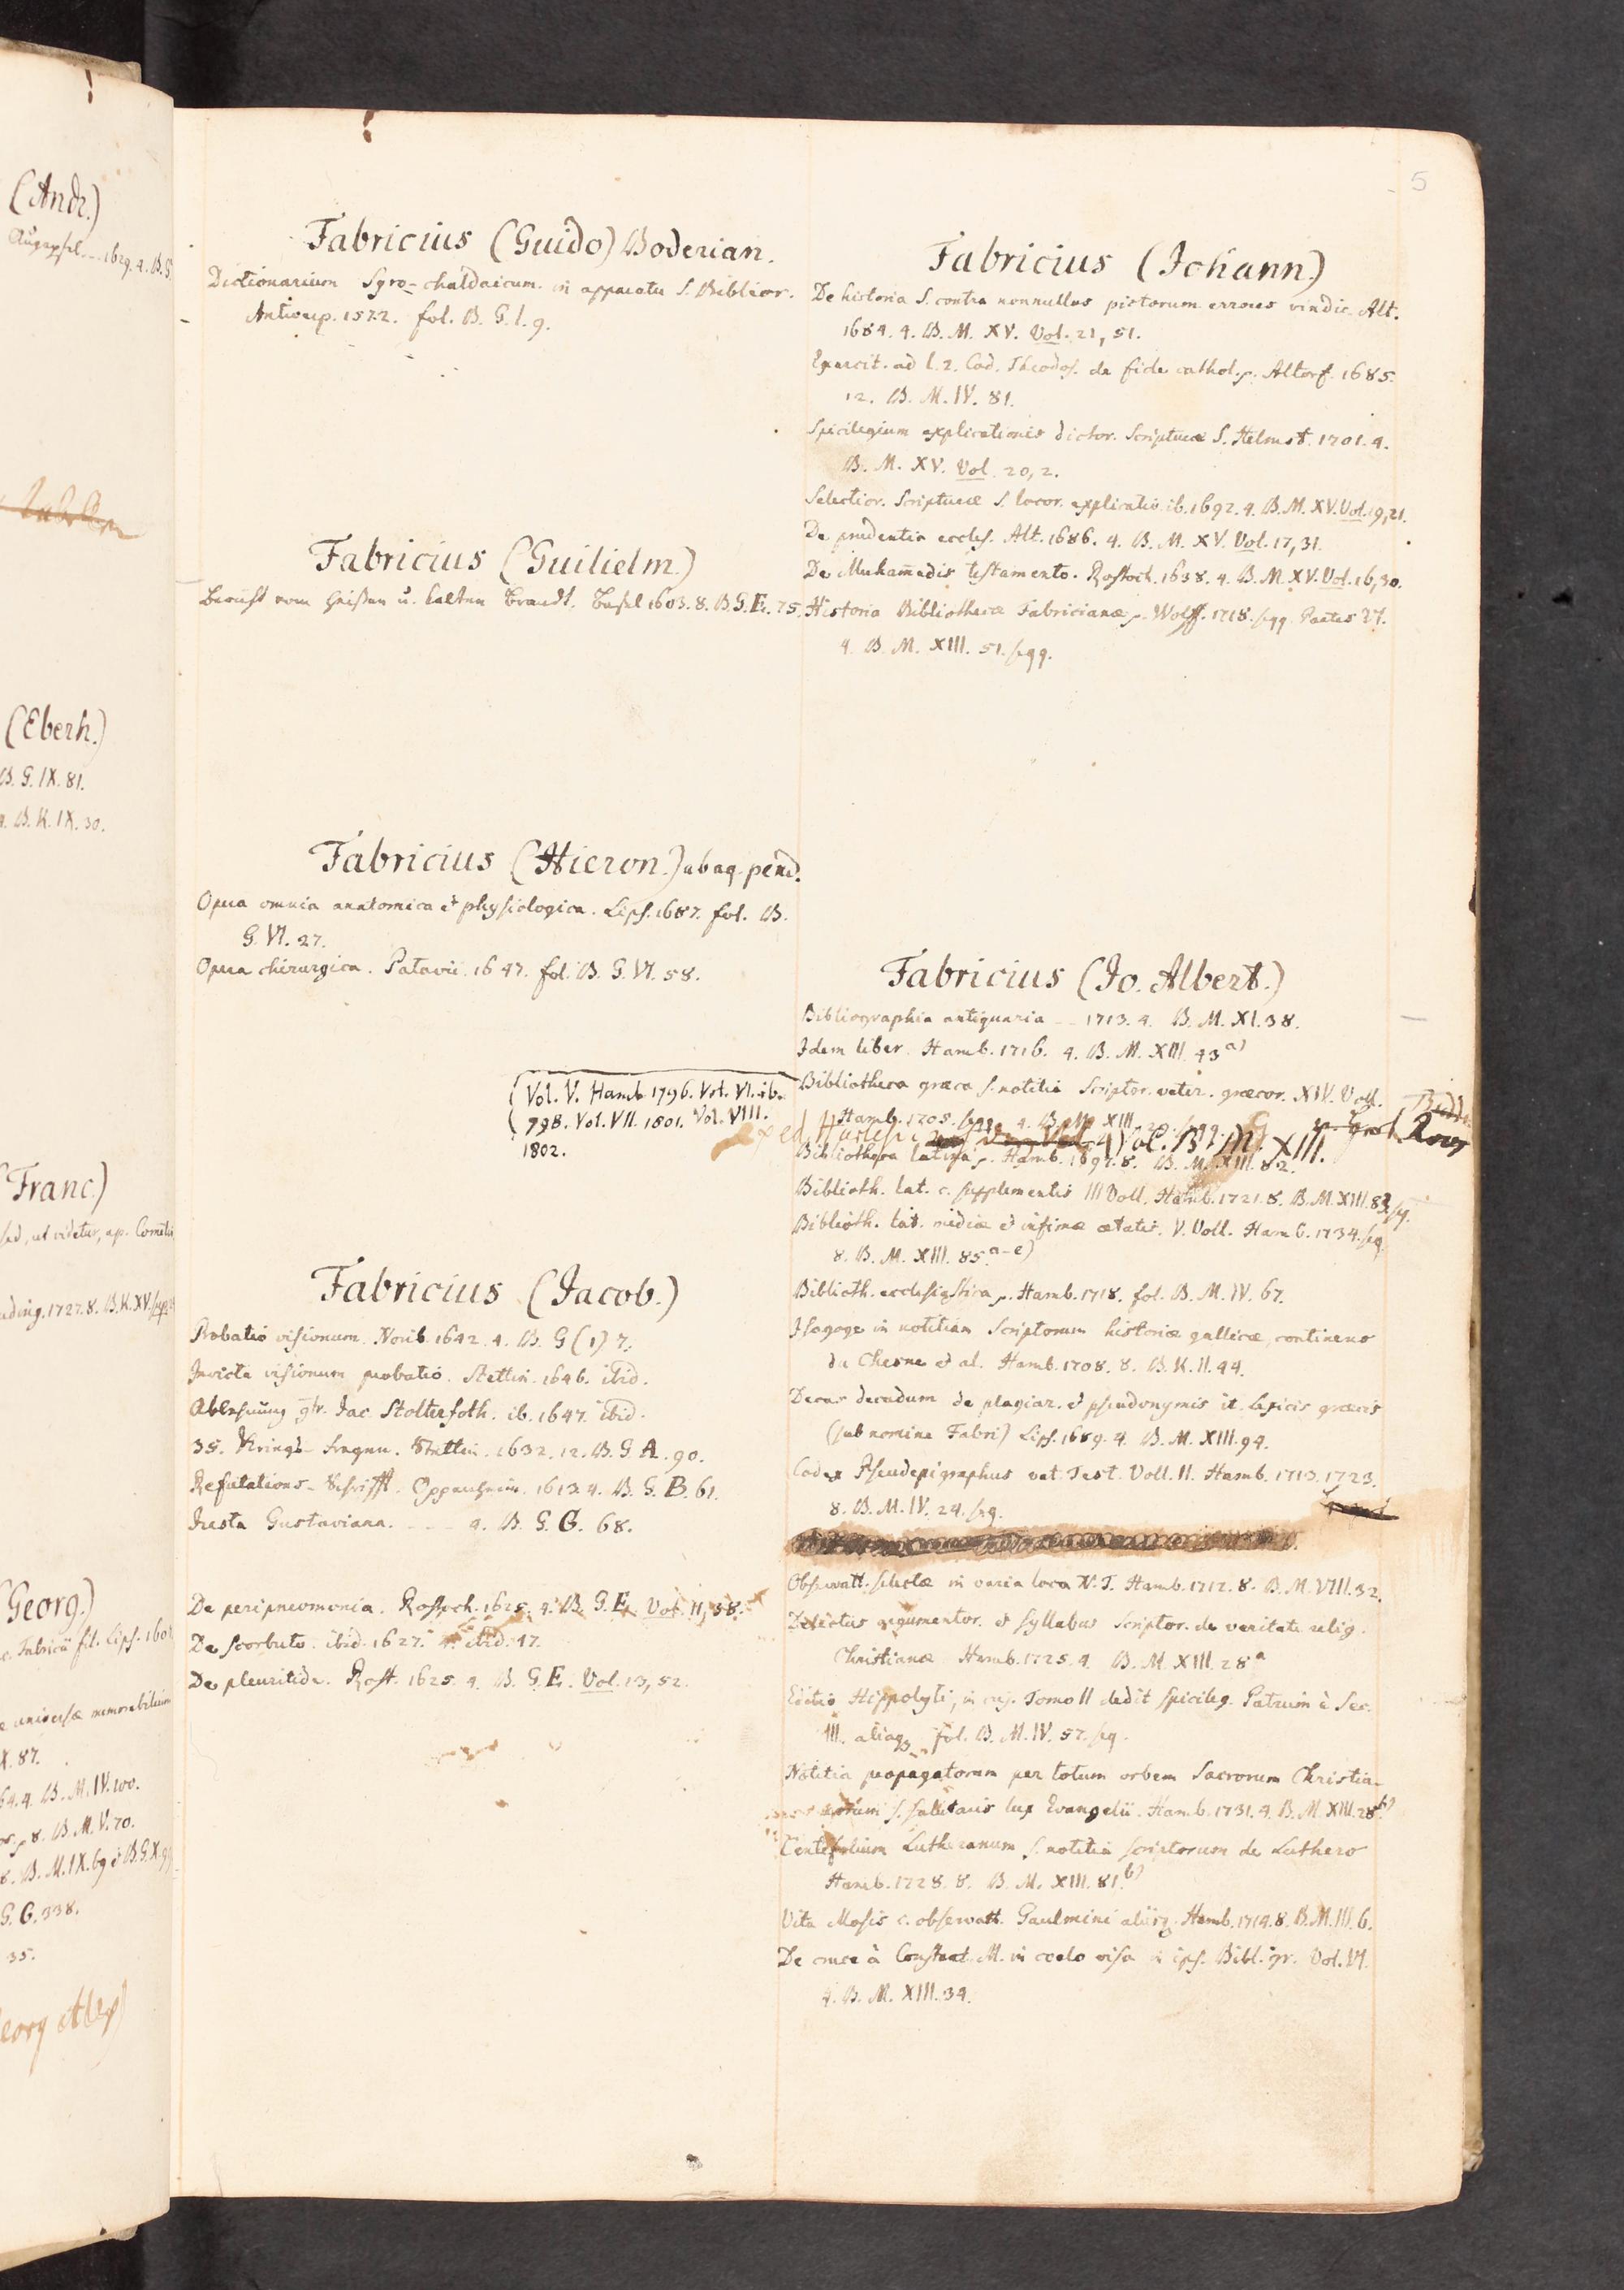 5
(Andr.)
1629. 4. B. G.
(Eberh.)
B. G. IX. 81.
B. K. IX. 30.
(Franc.)
sed, ut videtur, ap. Comelin
uding. 1727. 8. B. K. XV.
(Georg.)
c. Fabricii fil. Lips. 160
universæ memorabilium
X. 87.
64. 4. B. M. IV. 100.
8. B. M. V. 70.
8. B. M. IX. 69 & B. G. X.
G. G. 338.
35.
Fabricius (Guido) Boderian.
Dictionarium Syro-chaldaicum in apparatu S. Biblior.
Antwerp. 1572. fol. B. G. I. 9.
Fabricius (Guilielm.)
Bericht vom heißen u. kalten Brandt. Basel 1603. 8. B. G. E. 75.
Fabricius (Hieron.) ab aq. pend.
Opera omnia anatomica & physiologica. Lips. 1687. fol. B.
G. VI. 27.
Opera chirurgica. Patavii. 1647. fol. B. G. VI. 58.
Vol. V. Hamb. 1796. Vol. VI. ib.
798. Vol. VII. 1801. Vol. VIII.
1802.
Fabricius (Jacob.)
Probatio visionum. Norib. 1642. 4. B. G (1) 7.
Invicta visionum probatio. Stettin. 1646. ibid.
Ablehnung Jac. Stolterfoth. ib. 1647. ibid.
35. Kriegs-Fragen. Stettin. 1632. 12. B. G. A. 90.
Refutations-Schrifft. Oppenheim. 1613. 4. B. G. B. 61.
Justa Gustaviana. - - - 4. B. G. G. 68.
De peripneumonia. Rostoch. 1625. 4. B. G. E. Vol. 11, 58.
De scorbuto. ibid. 1627. 4. ibid. 47.
De pleuritide. Rost. 1625. 4. B. G. E. Vol. 13, 52.
Fabricius (Johann.)
De historia S. contra nonnullos pictorum errores vindic. Alt.
1684. 4. B. M. XV. Vol. 21, 51.
Exercit. ad l. 2. Cod. Theodos. de fide cathol. Altorf. 1685.
12. B. M. IV. 81.
Spicilegium explicationis dictor. Scripturæ S. Helmst. 1701. 4.
B. M. XV. Vol. 20, 2.
Selectior. Scripturæ S. locor. explicatio. ib. 1692. 4. B. M. XV. Vol. 19, 21.
De prudentia eccles. Alt. 1686. 4. B. M. XV. Vol. 17, 31.
De Muham̄edis testamento. Rostoch. 1638. 4. B. M. XV. Vol. 16, 30.
Historia Bibliothecæ Fabricianæ. Wolff. 1718. sqq. Partes VI.
4. B. M. XIII. 51. sqq.
Fabricius (Jo. Albert.)
Bibliographia antiquaria - - 1713. 4. B. M. XI. 38.
Idem liber. Hamb. 1716. 4. B. M. XIII. 43 a)
Bibliotheca græca s. notitia Scriptor. veter. græcor. XIV. Voll.
Hamb. 1705. sqq. 4. B. M. XIII. 29. sqq.
ex ed. Harlesii 4 Vol. B. M. XIII.
Bibliotheca latina. Hamb. 1697. 8. B. M. XIII. 82.
Biblioth. lat. c. supplementis III Voll. Hamb. 1721. 8. B. M. XIII. 83. sq.
Biblioth. lat. mediæ & infimæ ætatis. V. Voll. Hamb. 1734. sq.
8. B. M. XIII. 85. a-e)
Biblioth. ecclesiastica. Hamb. 1718. fol. B. M. IV. 67.
Isagoge in notitiam Scriptorum historiæ gallicæ, continens
du Chesne & al. Hamb. 1708. 8. B. K. II. 44.
Decas decadum de plagiar. & pseudonymis it. lexicis græcis
(sub nomine Fabri) Lips. 1689. 4. B. M. XIII. 94.
Codex Pseudepigraphus vet. Test. Voll. II. Hamb. 1713. 1723.
8. B. M. IV. 24. sq.
Observatt. selectæ in varia loca N. T. Hamb. 1712. 8. B. M. VIII. 32.
Delectus argumentor. & syllabus Scriptor. de veritate relig.
Christianæ Hamb. 1725. 4. B. M. XIII. 28 a
Editio Hippolyti, in cuj. Tomo II dedit spicileg. Patrum è Sec.
III. aliaq; fol. B. M. IV. 57. sq.
Notitia propagatorum per totum orbem Sacrorum Christia-
norum s. salutaris lux Evangelii. Hamb. 1731. 4. B. M. XIII. 28. b)
Centifolium Lutheranum s. notitia scriptorum de Luthero
Hamb. 1728. 8. B. M. XIII. 81. b)
Vita Mosis c. observatt. Gaulmini aliorq. Hamb. 1714. 8. B. M. III. 6.
De cruce à Constant. M. in coelo visa in ips. Bibl. gr. Vol. VI.
4. B. M. XIII. 34.